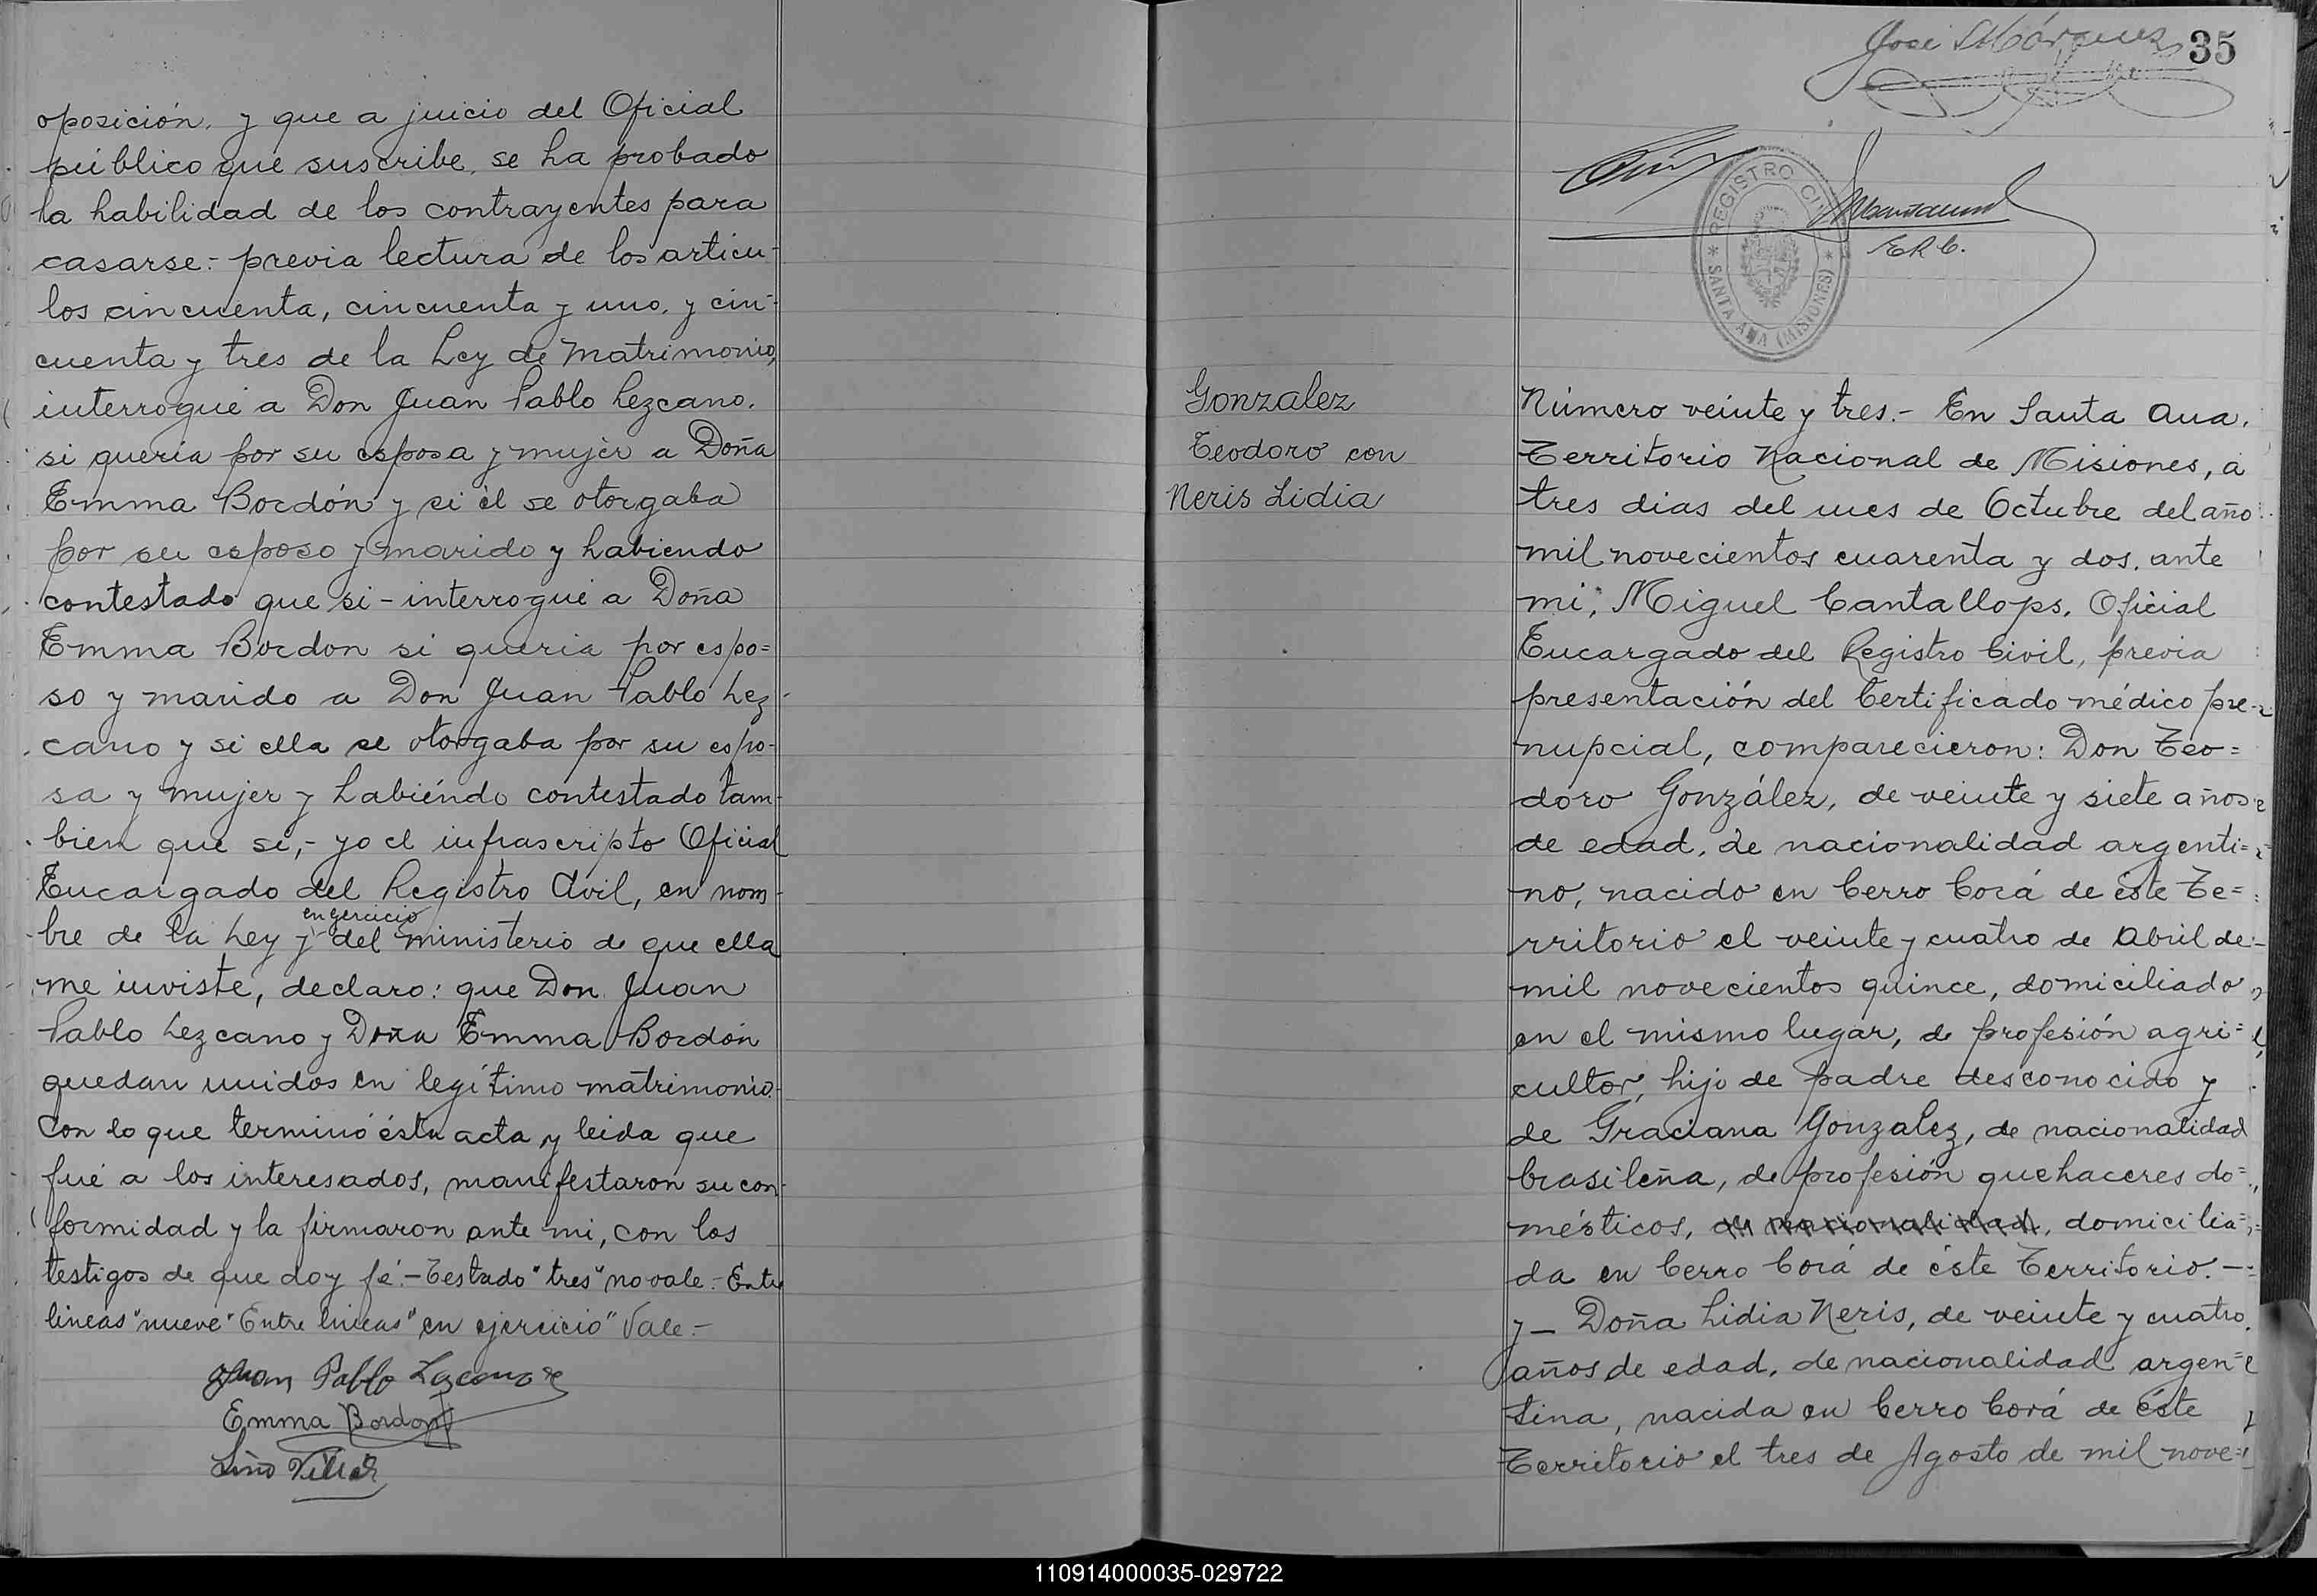 oposición. y que a juicio del Oficial
público que suscribe, se ha probado
la habilidad de los contrayentes para
casarse:- previa lectura de los articu-
los cincuenta, cincuenta y uno, y cin-
cuenta y tres de la Ley de Matrimonio,
interrogué a Don Juan Pablo Lezcano.
si quería por su esposa y mujer a Doña
Emma Bordón y si él se otorgaba
por su esposo y marido y habiendo
contestado que si - interrogué a Doña
Emma Bordon si queria por espo=
so y marido a Don Juan Pablo Lez-
cano y si ella se otorgaba por su espo-
sa y mujer y habiéndo contestado tam-
bien que si,- yo el infrascripto Oficial
Encargado del Registro Civil, en nom-
en ejercicio
bre de la Ley y del ministerio de que ella
me inviste, declaro: que Don Juan
Pablo Lezcano y Doña Emma Bordón
quedan unidos en legítimo matrimonio.
Con lo que terminó ésta acta y leida que
fué a los interesados, manifestaron su con-
formidad y la firmaron ante mi, con los
testigos de que doy fé.- Testado "tres" no vale.- Entre
lineas "nueve" Entre lineas "en ejercicio" Vale.-
Juan Pablo Lezcano
Emma Bordon
Lino Villar
José Márquez
35
REGISTRO CIVIL
* SANTA ANA (MISIONES) *
E R C.
Gonzalez
Teodoro con
Neris Lidia
Número veinte y tres.- En Santa Ana,
Territorio Nacional de Misiones, a
tres dias del mes de Octubre del año
mil novecientos cuarenta y dos, ante
mi, Miguel Cantallops, Oficial
Encargado del Registro Civil, previa
presentación del Certificado médico pre-
nupcial, comparecieron: Don Teo=
doro González, de veinte y siete años
de edad, de nacionalidad argenti=
no, nacido en Cerro Corá de éste Te=
rritorio el veinte y cuatro de Abril de
mil novecientos quince, domiciliado
en el mismo lugar, de profesión agri=
cultor, hijo de padre desconocido y
de Graciana Gonzalez, de nacionalidad
brasileña, de profesión quehaceres do=
mésticos, de nacionalidad, domicilia=
da en Cerro Corá de éste Territorio.-
y - Doña Lidia Neris, de veinte y cuatro
años de edad, de nacionalidad argen=
tina, nacida en Cerro Corá de éste
Territorio el tres de Agosto de mil nove=
110914000035-029722